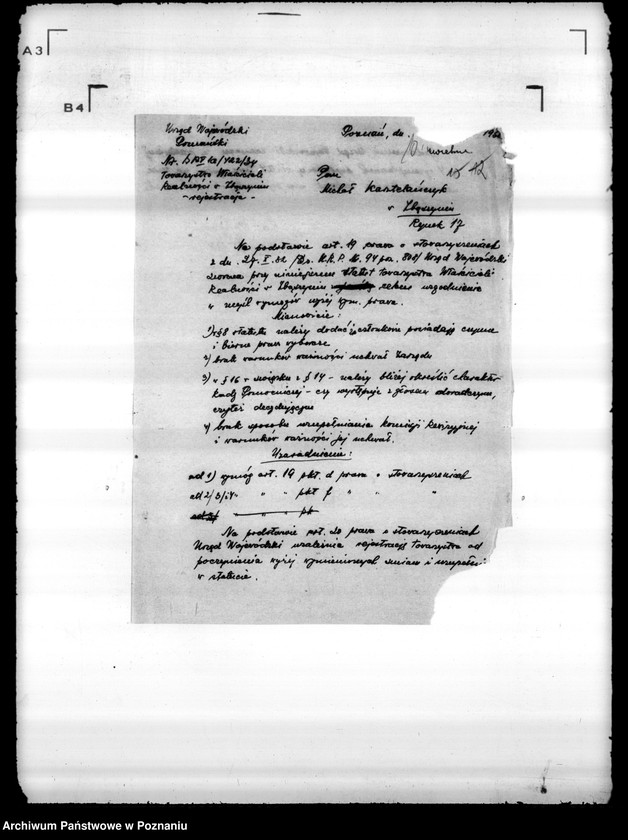 A3
B4
Urząd Wojewódzki
Poznański
Poznań, dn. 193
Nr.
Towarzystwo Właścicieli
Realności w Zbąszyniu
- rejestracja -
Pan
Michał Kasztelańczyk
w Zbąszyniu
Rynek 17
Na podstawie art. 19 prawa o stowarzyszeniach
z dn. 27. X. 32 /Dz. U. R. P. Nr. 94 poz. 808/ Urząd Wojewódzki
zwraca przy niniejszem statut Towarzystwa Właścicieli
Realności w Zbąszyniu celem uzgodnienia
w myśl wymogów wyżej wym. prawa.
Mianowicie:
1) w § 8 statutu należy dodać, że członkowie posiadają czynne
i bierne prawo wyborcze
2) brak warunków ważności uchwał Zarządu
3) w § 16 w związku z § 14 - należy bliżej określić charakter
Rady Pomocniczej - czy występuje z głosem doradczym,
czyteż decydującym
4) brak sposobu uzupełniania Komisji Rewizyjnej
i warunków ważności jej uchwał.
Uzasadnienie:
ad 1) wymóg art. 19 pkt. d prawa o stowarzyszeniach
ad 2/3/i4 " " " pkt f " " "
Na podstawie art. 20 prawa o stowarzyszeniach
Urząd Wojewódzki uzależnia rejestrację Towarzystwa od
poczynienia wyżej wymienionych zmian i uzupełn
w statucie.
Archiwum Państwowe w Poznaniu